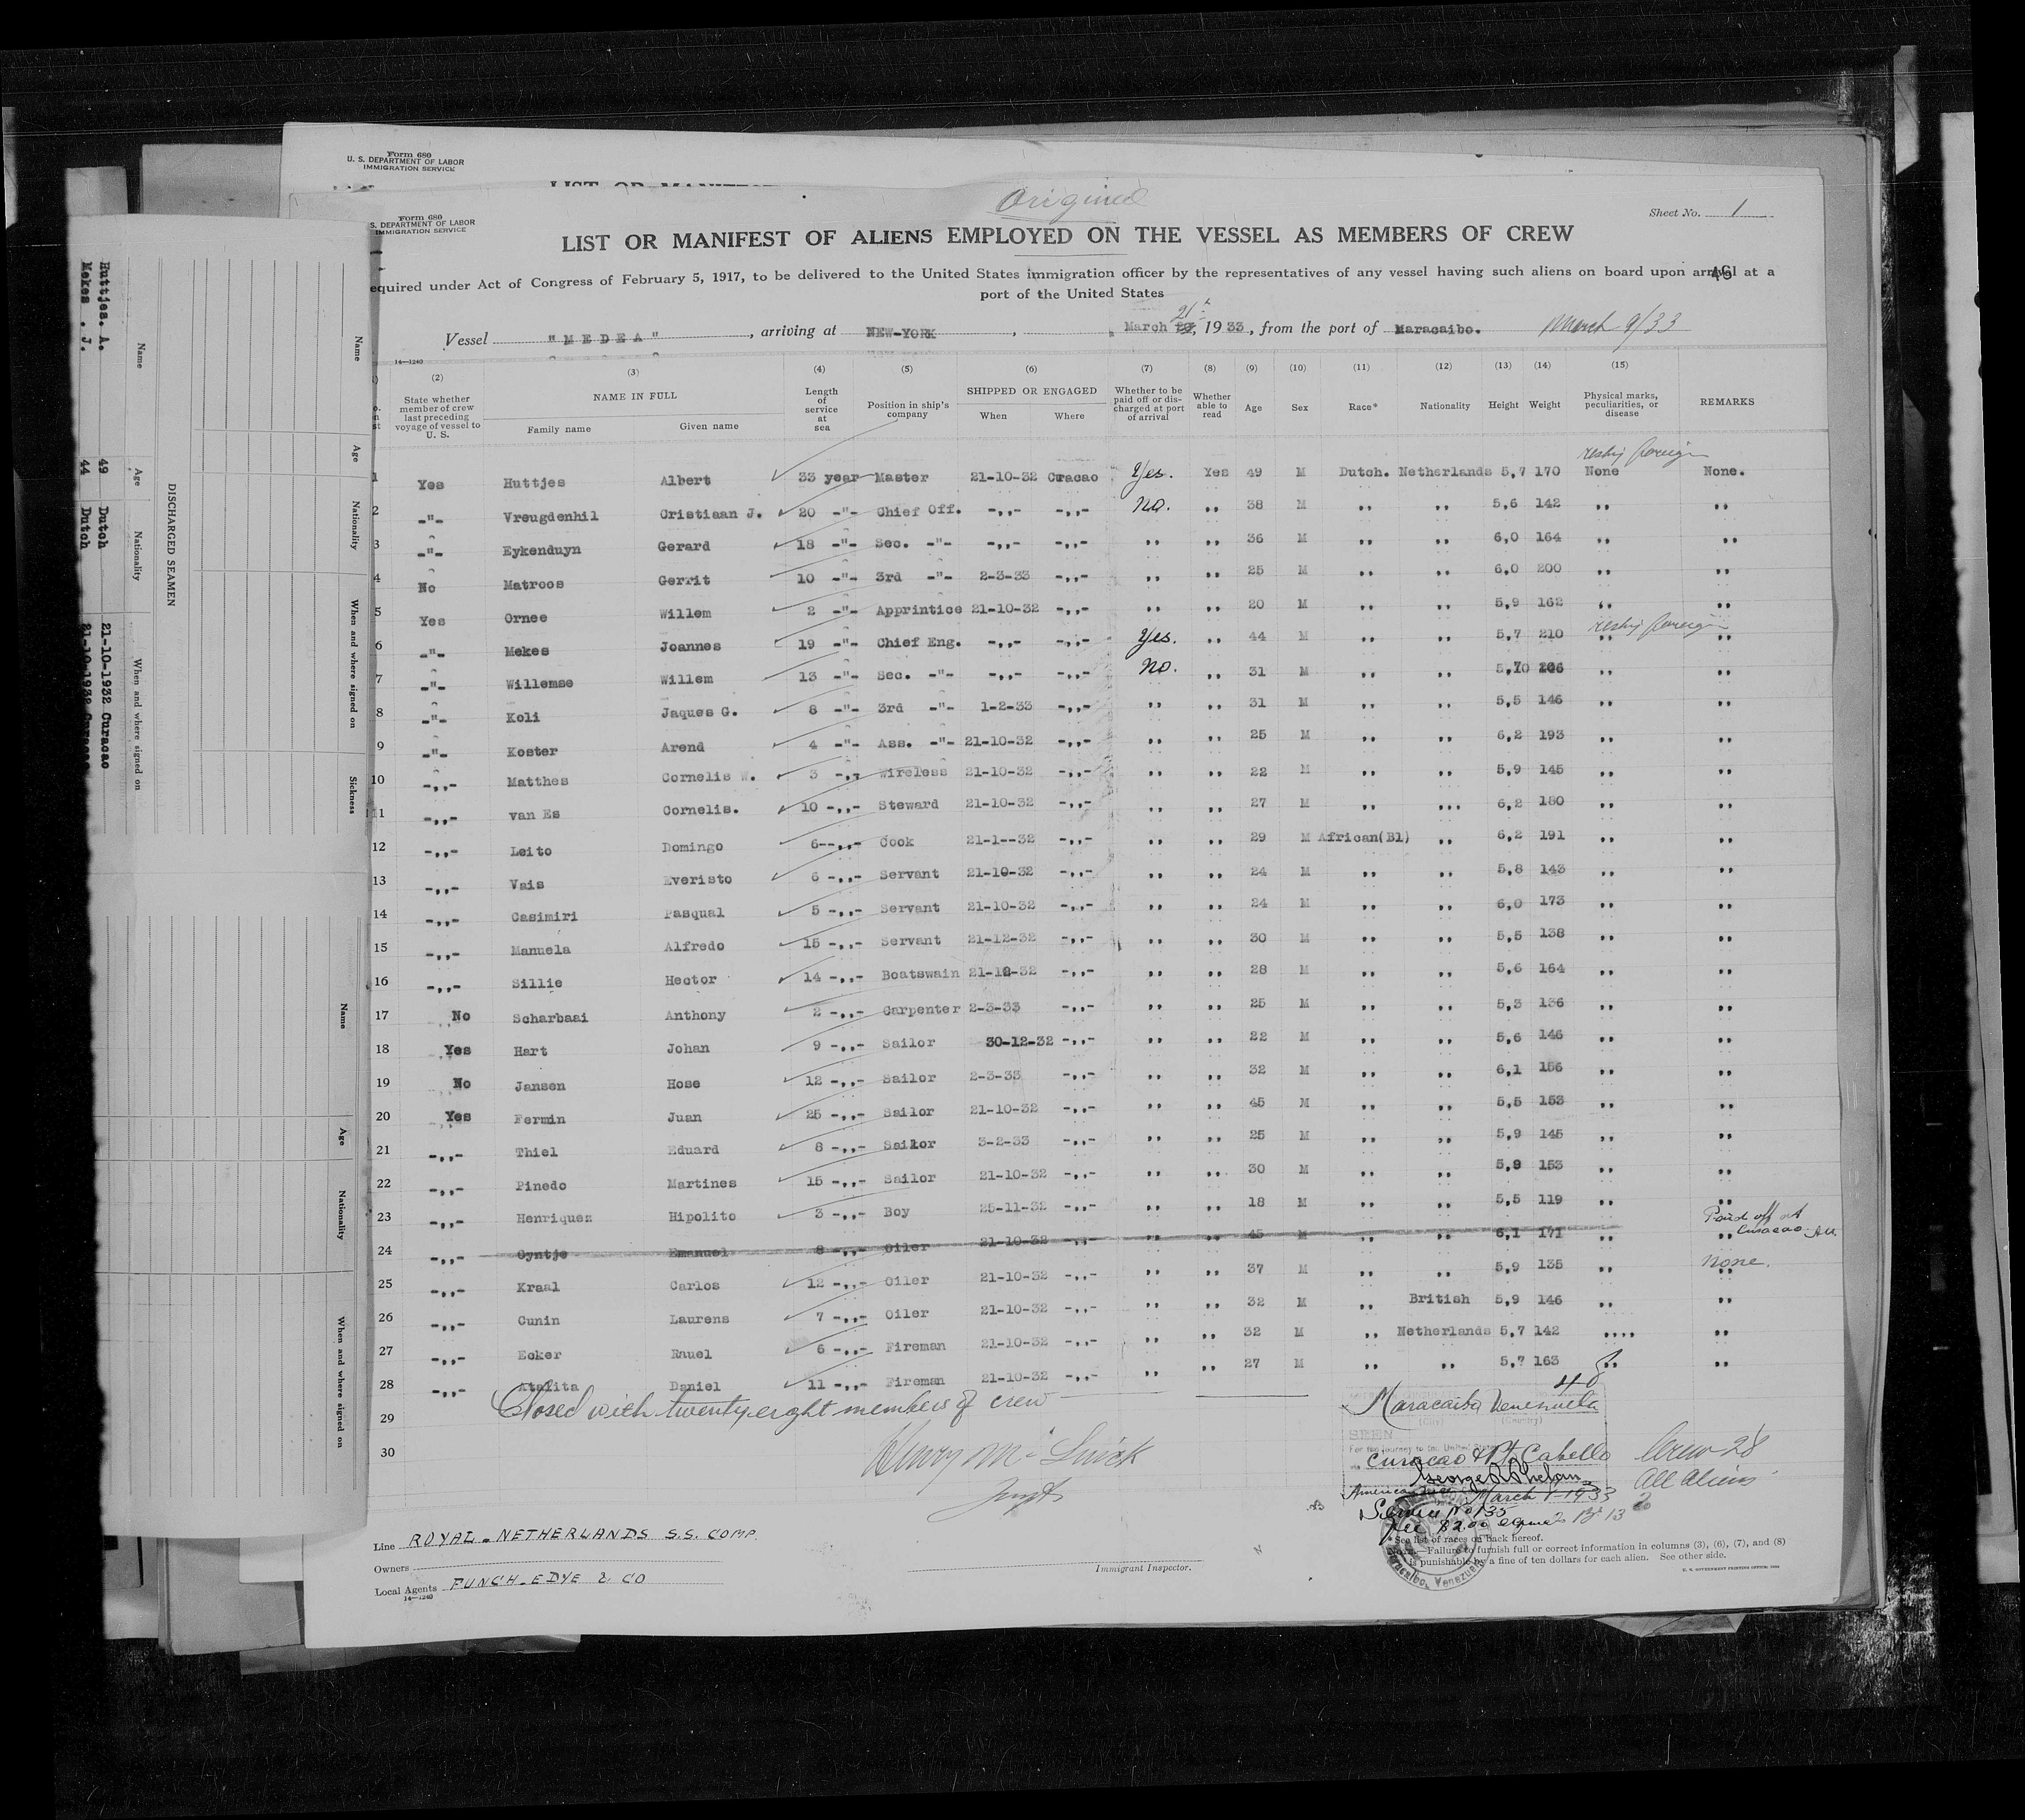 Form 680
U. S. DEPARTMENT OF LABOR
IMMIGRATION SERVICE
Form 680
S. DEPARTMENT OF LABOR
IMMIGRATION SERVICE
Original
Sheet No. 1
LIST OR MANIFEST OF ALIENS EMPLOYED ON THE VESSEL AS MEMBERS OF CREW
equired under Act of Congress of February 5, 1917, to be delivered to the United States immigration officer by the representatives of any vessel having such aliens on board upon arrival at a
port of the United States
Vessel "MEDEA", arriving at NEW-YORK, March 21, 1933, from the port of Maracaibo. March 9/33
14—1240
(2) (3) (4) (5) (6) (7) (8) (9) (10) (11) (12) (13) (14) (15)
State whether member of crew last preceding voyage of vessel to U. S.
NAME IN FULL
Family name Given name
Length of service at sea
Position in ship's company
SHIPPED OR ENGAGED
When Where
Whether to be paid off or discharged at port of arrival
Whether able to read
Age Sex Race* Nationality Height Weight
Physical marks, peculiarities, or disease
REMARKS
1 Yes Huttjes Albert 33 year Master 21-10-32 Curacao Yes. Yes 49 M Dutch. Netherlands 5,7 170 None None.
2 -"- Vreugdenhil Cristiaan J. 20 -"- Chief Off. -,,- -,,- No. ,, 38 M ,, ,, 5,6 142 ,, ,,
3 -"- Eykenduyn Gerard 18 -"- Sec. -"- -,,- -,,- ,, ,, 36 M ,, ,, 6,0 164 ,, ,,
4 No Matroos Gerrit 10 -"- 3rd -"- 2-3-33 -,,- ,, ,, 25 M ,, ,, 6,0 200 ,, ,,
5 Yes Ornee Willem 2 -"- Apprintice 21-10-32 -,,- ,, ,, 20 M ,, ,, 5,9 162 ,, ,,
6 -"- Mekes Joannes 19 -"- Chief Eng. -,,- -,,- Yes. ,, 44 M ,, ,, 5,7 210 ,, ,,
7 -"- Willemse Willem 13 -"- Sec. -"- -,,- -,,- No. ,, 31 M ,, ,, 5,10 ,, ,,
8 -"- Koli Jaques G. 8 -"- 3rd -"- 1-2-33 -,,- ,, ,, 31 M ,, ,, 5,5 146 ,, ,,
9 -"- Koster Arend 4 -"- Ass. -"- 21-10-32 -,,- ,, ,, 25 M ,, ,, 6,2 193 ,, ,,
10 -,,- Matthes Cornelis W. 3 -,,- Wireless 21-10-32 -,,- ,, ,, 22 M ,, ,, 5,9 145 ,, ,,
11 -,,- van Es Cornelis. 10 -,,- Steward 21-10-32 -,,- ,, ,, 27 M ,, ,,, 6,2 180 ,, ,,
12 -,,- Leito Domingo 6--,,- Cook 21-1--32 -,,- ,, ,, 29 M African(Bl) ,, 6,2 191 ,, ,,
13 -,,- Vais Everisto 6 -,,- Servant 21-10-32 -,,- ,, ,, 24 M ,, ,, 5,8 143 ,, ,,
14 -,,- Casimiri Pasqual 5 -,,- Servant 21-10-32 -,,- ,, ,, 24 M ,, ,, 6,0 173 ,, ,,
15 -,,- Manuela Alfredo 15 -,,- Servant 21-12-32 -,,- ,, ,, 30 M ,, ,, 5,5 138 ,, ,,
16 -,,- Sillie Hector 14 -,,- Boatswain 21-12-32 -,,- ,, ,, 28 M ,, ,, 5,6 164 ,, ,,
17 No Scharbaai Anthony 2 -,,- Carpenter 2-3-33 -,,- ,, ,, 25 M ,, ,, 5,3 136 ,, ,,
18 Yes Hart Johan 9 -,,- Sailor 30-12-32 -,,- ,, ,, 22 M ,, ,, 5,6 146 ,, ,,
19 No Jansen Hose 12 -,,- Sailor 2-3-33 -,,- ,, ,, 32 M ,, ,, 6,1 156 ,, ,,
20 Yes Fermin Juan 25 -,,- Sailor 21-10-32 -,,- ,, ,, 45 M ,, ,, 5,5 153 ,, ,,
21 -,,- Thiel Eduard 8 -,,- Sailor 3-2-33 -,,- ,, ,, 25 M ,, ,, 5,9 145 ,, ,,
22 -,,- Pinedo Martines 15 -,,- Sailor 21-10-32 -,,- ,, ,, 30 M ,, ,, 5,9 153 ,, ,,
23 -,,- Henriquez Hipolito 3 -,,- Boy 25-11-32 -,,- ,, ,, 18 M ,, ,, 5,5 119 ,, ,,
24 -,,- Cyntje Emanuel 8 -,,- Oiler 21-10-32 -,,- ,, ,, 45 M ,, ,, 6,1 171 ,, ,, Paid off at Curacao
25 -,,- Kraal Carlos 12 -,,- Oiler 21-10-32 -,,- ,, ,, 37 M ,, ,, 5,9 135 ,, None.
26 -,,- Cunin Laurens 7 -,,- Oiler 21-10-32 -,,- ,, ,, 32 M ,, British 5,9 146 ,, ,,
27 -,,- Ecker Rauel 6 -,,- Fireman 21-10-32 -,,- ,, ,, 32 M ,, Netherlands 5,7 142 ,,,, ,,
28 -,,- Atalita Daniel 11 -,,- Fireman 21-10-32 -,,- ,, ,, 27 M ,, ,, 5,7 163 ,, ,,
29 Closed with twenty eight members of crew
30
Maracaibo Venezuela
(City) (Country)
SEEN
For the journey to the United States
via Curacao & Pt. Cabello
George R Phelan
March 1933
Service No 135
fee $2.00 equal
Crew 28
All Aliens
Line ROYAL. NETHERLANDS S.S. COMP.
Owners
Local Agents FUNCH. EDYE & CO
14—1240
Immigrant Inspector.
*See list of races on back hereof.
NOTE.—Failure to furnish full or correct information in columns (3), (6), (7), and (8)
is punishable by a fine of ten dollars for each alien. See other side.
U. S. GOVERNMENT PRINTING OFFICE
Maracaibo, Venezuela
DISCHARGED SEAMEN
Name Age Nationality When and where signed on
Huttjes. A. 49 Dutch 21-10-1932 Curacao
Mekes . J. 44 Dutch 21-10-1932 Curacao
Name Age Nationality When and where signed on Sickness
Name Age Nationality When and where signed on